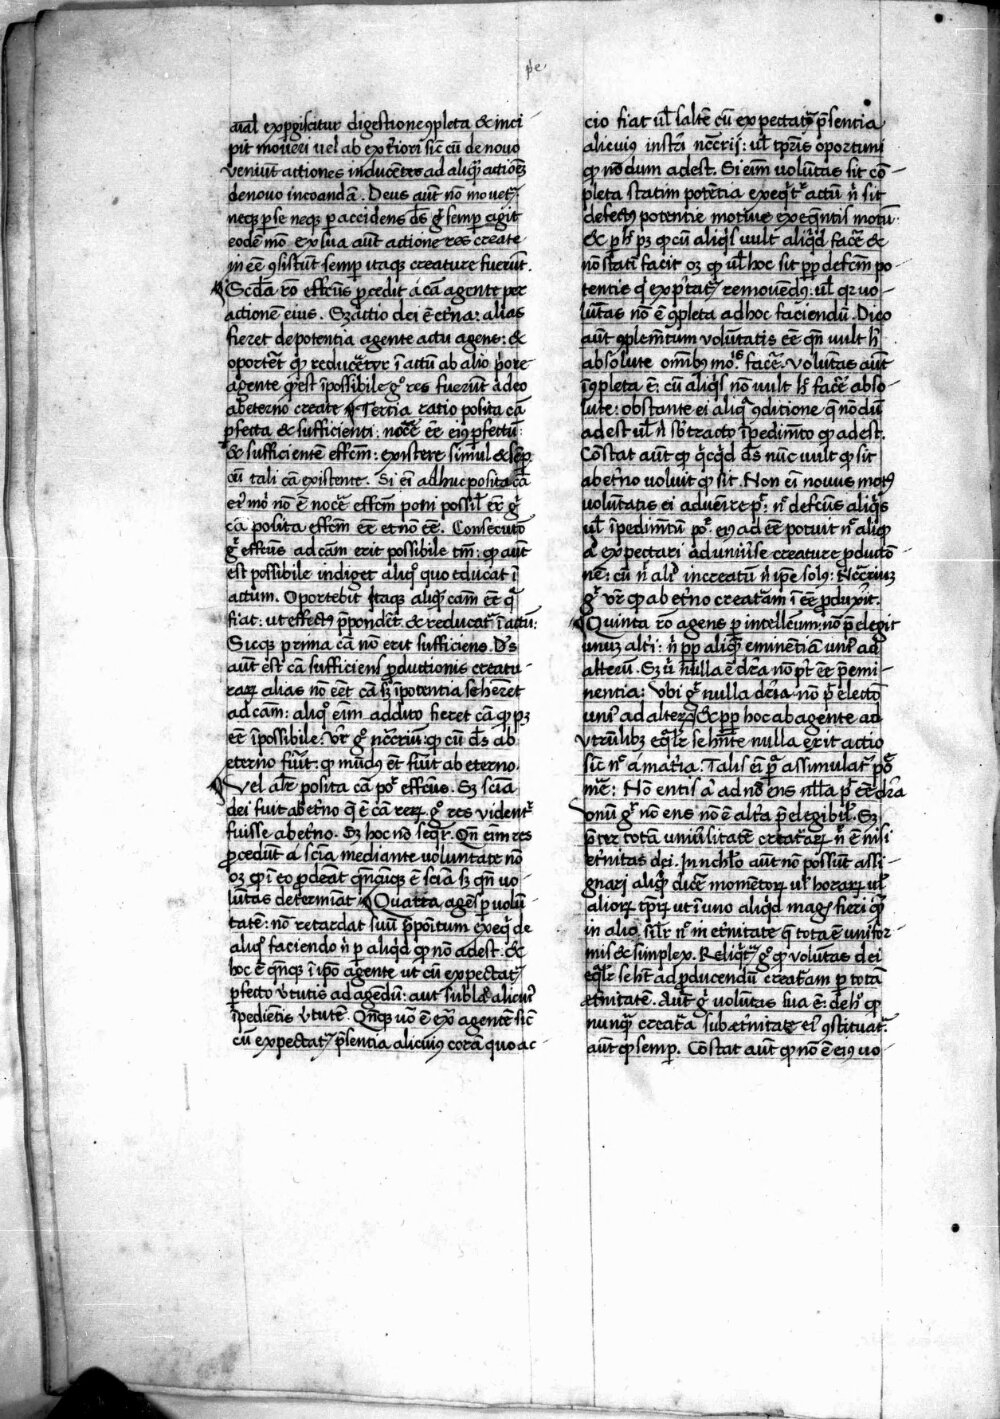 pe
aīal exꝑgiscitur digestione ꝯpleta & inci
pit moueri vel ab exteriori sic̄ cū de nouo
veniūt actiones inducētes ad aliquā actionē
denouo incoandā. Deus aūt nō mouetur
neqꝫ ꝑ se neqꝫ ꝑ accidens d̄s gͦ semper agit
eodē mō ex sua aūt actione res create
in eē ꝯsistūt semper itaqꝫ creature fuerūt.
Scd̄a rō effc̄us ꝓcedit a cā agente per
actionem eius. Sꝫ actio dei ē et̄na: alias
fieret de potentia agente actu agens: &
oportet qꝫ reducēretur ī actū ab alio ṗore
agente qͦ est īpossibile gͦ res fuerūt a deo
abeterno create Tertia ratio posita cā
ꝑfecta & sufficienti: nēcē ēē eiꝰ ꝑfectū:
& sufficientē effc̄m: existere simul & semꝑ
cū tali cā existente. Si eī adhuc posita cā
etͥ mō nō ē nēcē effc̄m poni possiƚ ēē gͦ
cā posita effc̄m ēē et nō ēē. Consecutō
gͦ effc̄us ad cām erit possibile tm̄: qꝙ aūt
est possibile indiget aliqͦ quo educat ī
actum. Oportebit itaqꝫ aliqͣ cām ēē qͣ
fiat: ut effectꝰ p̄pondet & reducatͬ ī actū:
Sicqꝫ prima cā nō erit sufficiens. D̄s
aūt est cā sufficiens ꝓductionis creatu
raꝝ alias nō eēt cā sꝫ īpotentia se heret
ad cām: aliqͦ eīm addito fieret cā qꝙ pꝫ
ēē īpossibile. Vr̄ gͦ ncc̄riū: qꝙ cū d̄s ab
eterno fūit: qꝙ mūdꝰ ēt fūit ab eterno.
Vel alr̄ posita cā poͬ effc̄us. Sꝫ scīa
dei fuit abet̄no qͣ ē cā reꝝ. gͦ res videntͬ
fuisse abet̄no. Sꝫ hoc nō seqͬ. Qn̄ eīm res
ꝓcedūt a scīa mediante voluntate nō
oꝫ qꝙ ī eo ꝓdeāt qn̄cūqꝫ ē scīa sꝫ qn̄ vo
lūtas determīat Quarta agēs ꝑ volū
tatē: nō retardat suū ꝓpōitum exeqͥ de
aliqͦ faciendo n̄ ꝑ aliqͥd qꝙ nō adest. &
hoc ē qn̄qꝫ ī ipō agente ut cū expectatͬ
ꝑfectō v̄tutis ad agēdū: aut sublātō alicuiꝰ
īpediētis v̄tutē. Qn̄qꝫ vō ē exͣ agentē sic̄
cū expectatͬ p̄sentia alicuiꝰ corā quo ac
cio fiat ul̄ saltē cū expectatͬ p̄sentia
alicuiꝰ instrī ncc̄rii: ul̄ tꝑis oportuni
qꝙ nōdum adest. Si eīm volūtas sit cō
pleta statim potētia exeqͥtͬ actū n̄ sit
defectꝰ potentie motiue exeqūtis motū.
& ꝑ hͦ pꝫ qꝙ cū aliqͥs vult aliqͥd facē &
nō statī facit oꝫ qꝙ ul̄ hoc sit ꝓp defc̄m po
tentie qͥ expctatͬ remouendꝰ: ul̄ qꝛ vo
lūtas nō ē ꝯpleta ad hoc faciendū. Dico
aūt ꝯplemētum volūtatis ēē qn̄ uult hͦ
absolute omībꝰ moīs facē. Voluntas aūt
īꝯpleta ē: cū aliqͥs nō uult hͦ facē abso
lute: obstante ei aliqͣ ꝯditione qͣ nōdū
adest ul̄ n̄ sb̄tracto īpedimēto qꝙ adest.
Cōstat aūt qꝙ qͥcqͥd d̄s nūc uult qꝙ sit
abet̄no voluit qꝙ sit. Non eī nouus motꝰ
voluntatis ei aduenire pͭ: nͨ defc̄us aliqͥs
ul̄ īpedimētū poͭ. eiꝰ adēē potuit nͨ aliqͥd
a expectari ad uniūse creature ꝓductō
nē: cū n̄ aliͥ increatū n̄ ipē solꝰ: Ncc̄riuꝫ
gͦ vr̄ qꝙ abet̄no creatͣam ī ēē ꝓduxit.
Quinta rō agens ꝑ intellc̄um: nō p̄elegit
unuꝫ alt̄i: n̄ ꝓp aliqͣ eminētiā uniꝰ ad
alterū. Sꝫ uͥ nulla ē dr̄a nō pͭ ēē p̄emi
nentia: Vbi gͦ nulla dr̄ia nō pͭ electō
uniꝰ ad alterū: & ꝓp hoc ab agente ad
vtrūlibꝫ eqͣlr̄ se hn̄te nulla erit actio
sic̄ nͨ a mat̄ia. Talis eī pͣ assimulatͬ poͣ
mͤe: Nō entis aͫ ad nō ens nll̄a pͭ ēē dr̄a
Vnū gͦ nō ens nō ē altͦ p̄elegibiƚ. Sꝫ
p̄ter totā uniūsitatē creatͣaꝝ nͨ ē nisi
et̄nitas dei. In nichͦ aūt nō possūt assi
gnari aliqͣ dicē̄ momētoꝝ ul̄ horaꝝ ul̄
alioꝝ tꝑm ut ī uno aliqͥd magͥ fieri qͣ
in alio. silr̄ nͨ in et̄nitate qͣ tota ē unifor
mis & simplex. Reliqͥtͬ gͦ qꝙ voluntas dei
eqͣlr̄ se ht̄ ad ꝓducendū creatͣam ꝑ totā
æt̄nitatē. Aut gͦ voluntas sua ē: de hͦ qꝙ
nunqͣ creatͣa sub æt̄nitate eiꝰ ꝯstituatͬ.
aūt qꝙ semꝑ. Cōstat aūt qꝙ nō ē eiꝰ uo